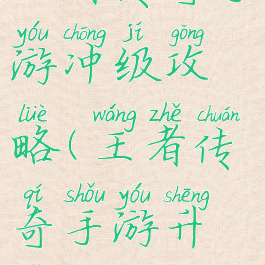 yóu chōng jí gōng
游冲级攻
lüè wáng zhě chuán
略(王者传
qí shǒu yóu shēng
奇手游升